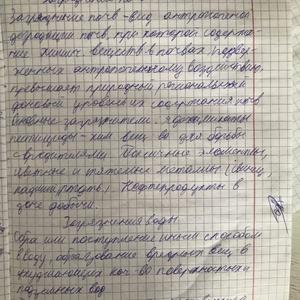 Загрязнение почв - вид антропогенной
деградации почв, при которой содержа-
ние химич. веществ в почвах, подвер-
женных антропогенному воздействию,
превышает природный региональный
фоновой уровень их содержания в почв
Основные загрязнители: ядохимикаты
пестициды - хим вещ. во для борьбы
с вредителями. Токсичные элементы,
цветные и тяжелые металлы (свинец,
кадмий, ртуть). Нефтепродукты в
зоне добычи.
Загрязнения воды
Сброс или поступление иным способом
в воду, образование вредных вещ. в
ухудшающих кач-во поверхностных и
подземных вод